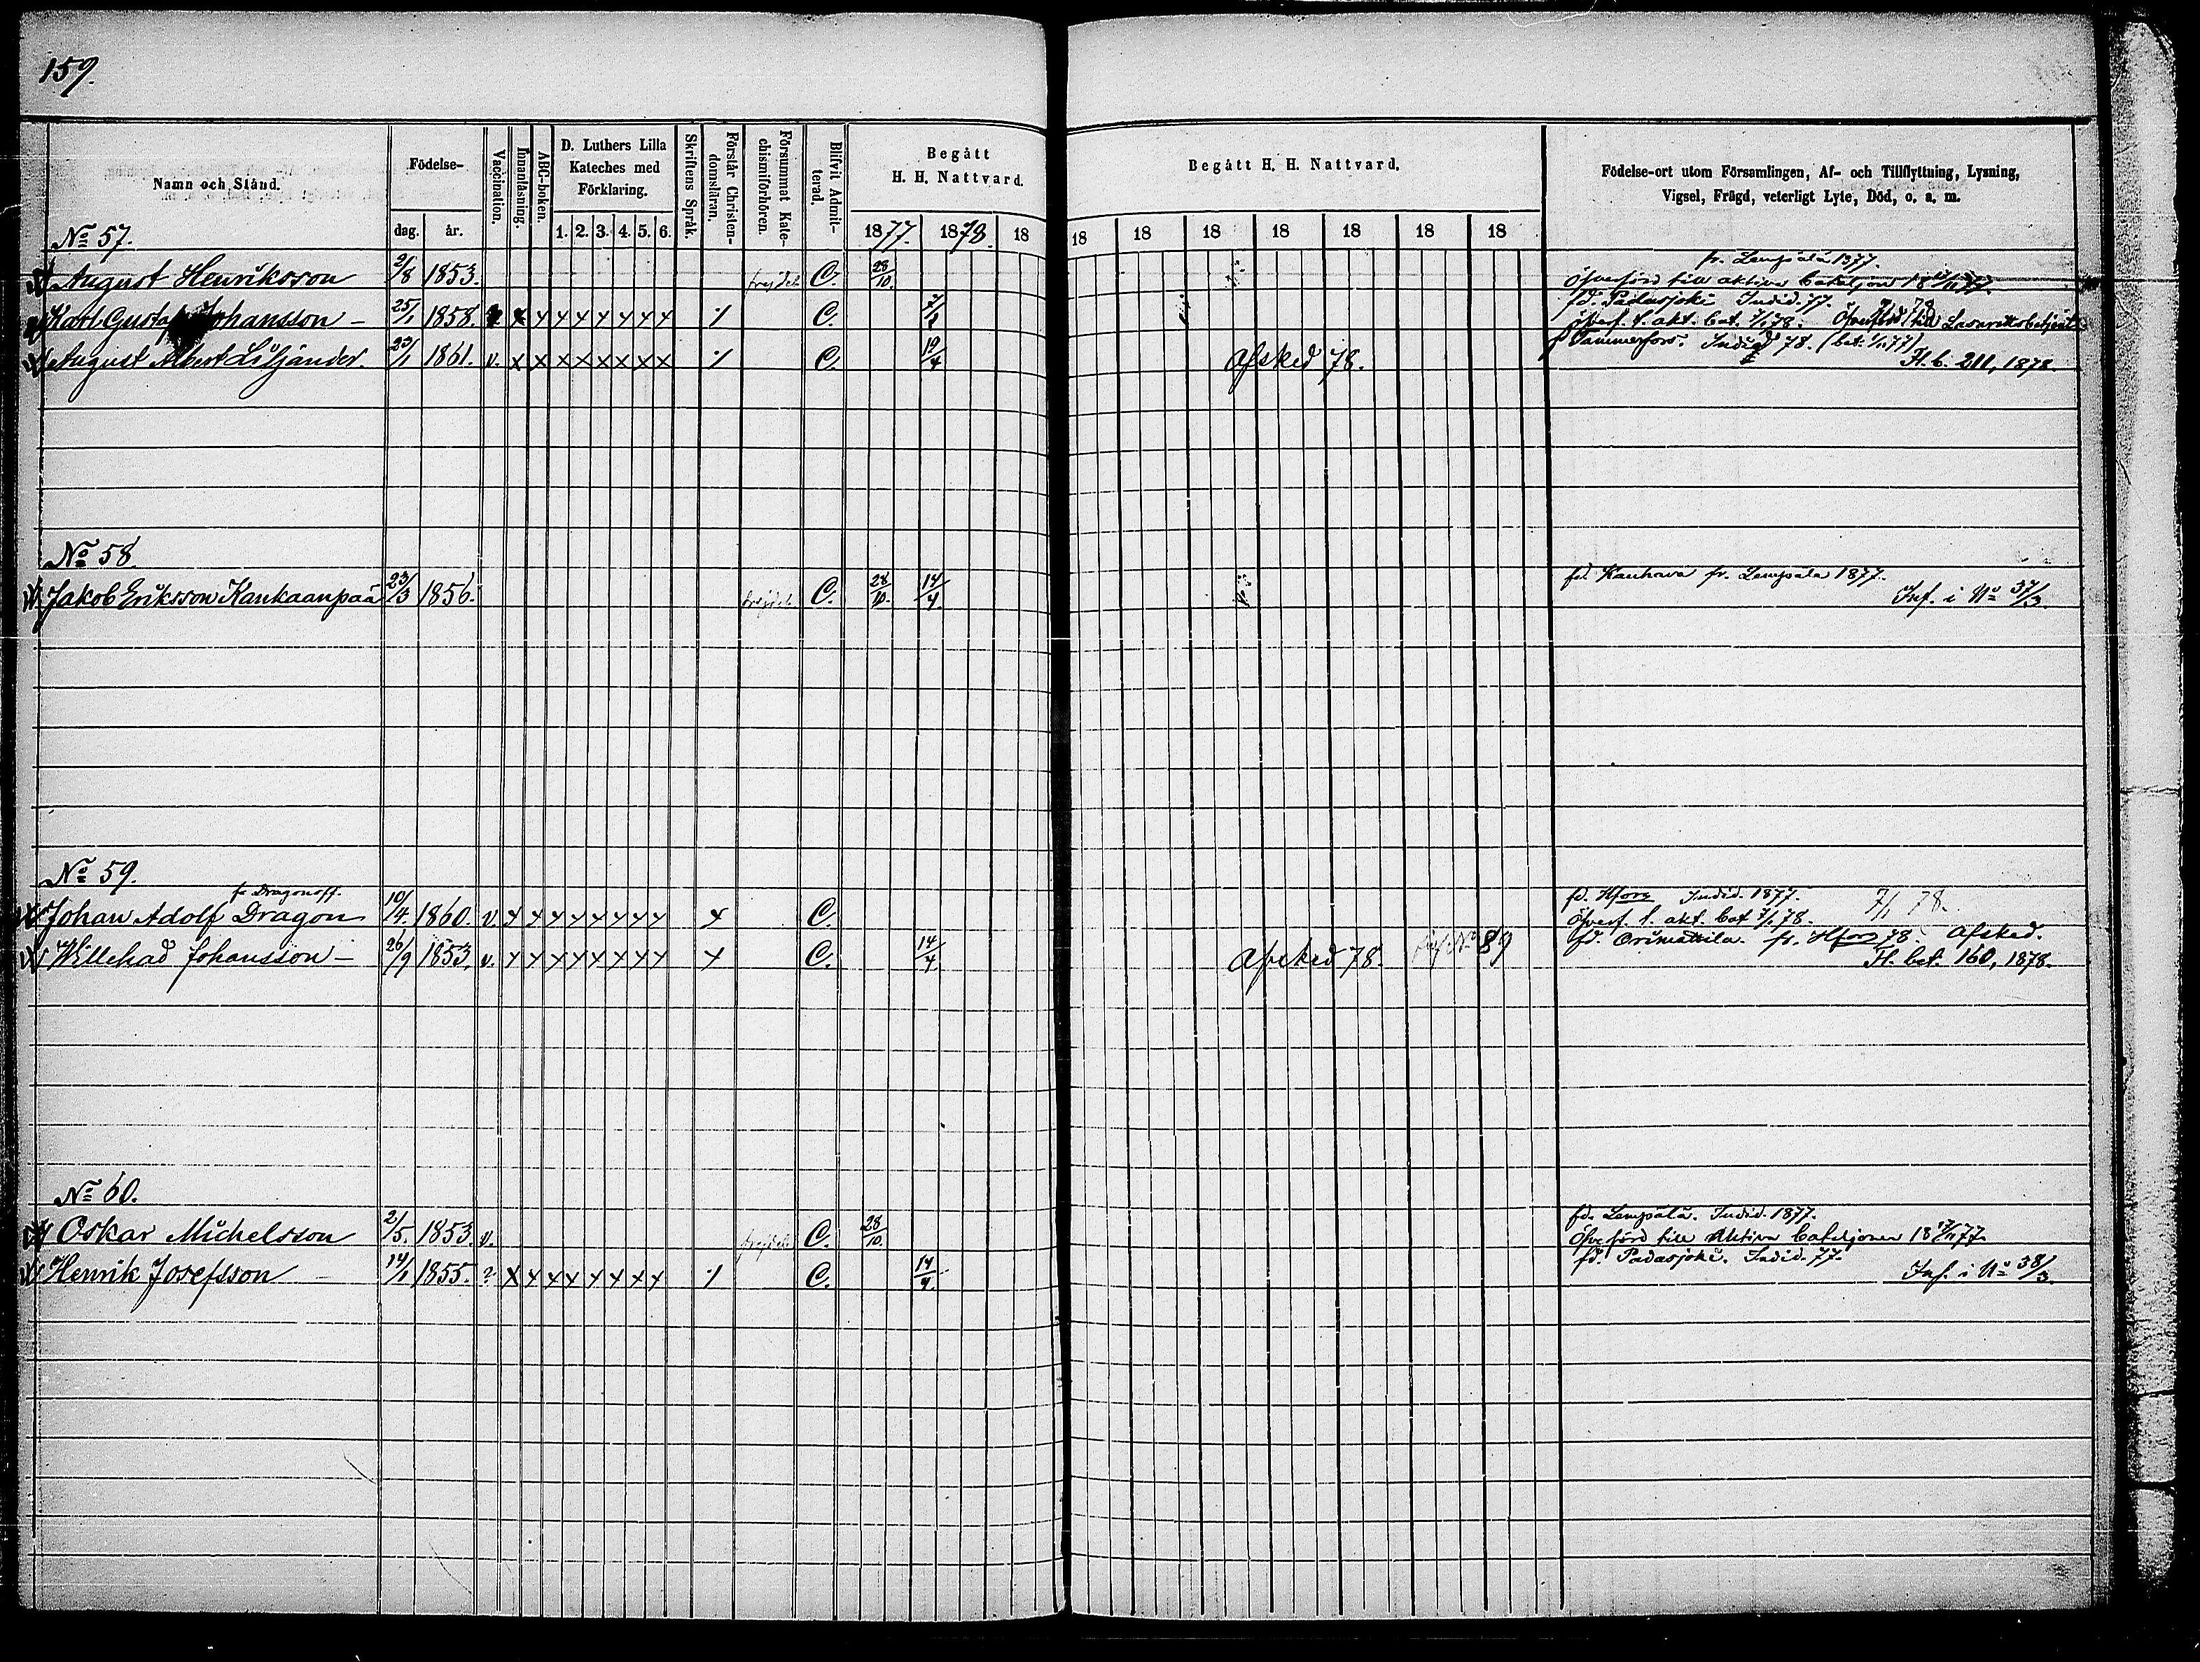 159.
Namn och Stånd.
Födelse-
dag.
år.
Vaccination.
Innanläsning.
ABC-boken.
D. Luthers Lilla
Kateches med
Förklaring.
1. 2. 3. 4. 5. 6.
Skriftens Språk.
Förstår Christen-
domsläran.
Försummat Kate-
chismiförhören.
Blifvit Admit-
terad.
Begått
H. H. Nattvard.
1877. 1878. 18
Begått H. H. Nattvard.
18 18 18 18 18 18 18
Födelse-ort utom Församlingen, Af- och Tillflyttning, Lysning,
Vigsel, Frägd, veterligt Lyte, Död, o. s. m.
No 57.
fr. Lempäla 1877.
August Henriksson 2/8 1853. frejdeb. C. 28/10.
Öfverförd till aktiva bataljon 18 77.
fd. Padasjoki Indid. 77.
Karl Gustaf Johansson - 25/1 1858. x x x x x x x x ·/· C.
öfverf. t. akt. bat. 7/1 78. Öfverförd till
August Albert Liljander. 23/1 1861. v. x x x x x x x x ·/· C. 19/4 Afsked 78.
Tammerfors. Indid 78. (bet. 77)
H. b. 211, 1878.
No 58.
fd. Kauhava fr. Lempäla 1877.
Jakob Eriksson Kankaanpää 23/3 1856. frejdeb. C. 28/10. 14/4. Inf. i No 37/3.
No 59.
fr Dragonoff.
fd. Hfors Indid. 1877. 7/1 78.
Johan Adolf Dragon 10/4. 1860. v. x x x x x x x x x C.
Öfverf. t. akt. bat 7/1 78.
fd. Orimattila. fr. Hfors 78. Afsked.
Willehad Johansson - 26/9 1853. v. x x x x x x x x x C. 14/4 Afsked 78. 89
H. bet. 160, 1878.
No 60.
fd. Lempäla. Indid. 1877.
Oskar Michelsson 2/5. 1853. v. frejdeb. C. 28/10.
Öfverförd till Aktiva bataljonen 18 77.
fd. Padasjoki. Indid. 77.
Henrik Josefsson - 14/1 1855. ? x x x x x x x x ·/· C. 14/4. Inf. i No 38/3.